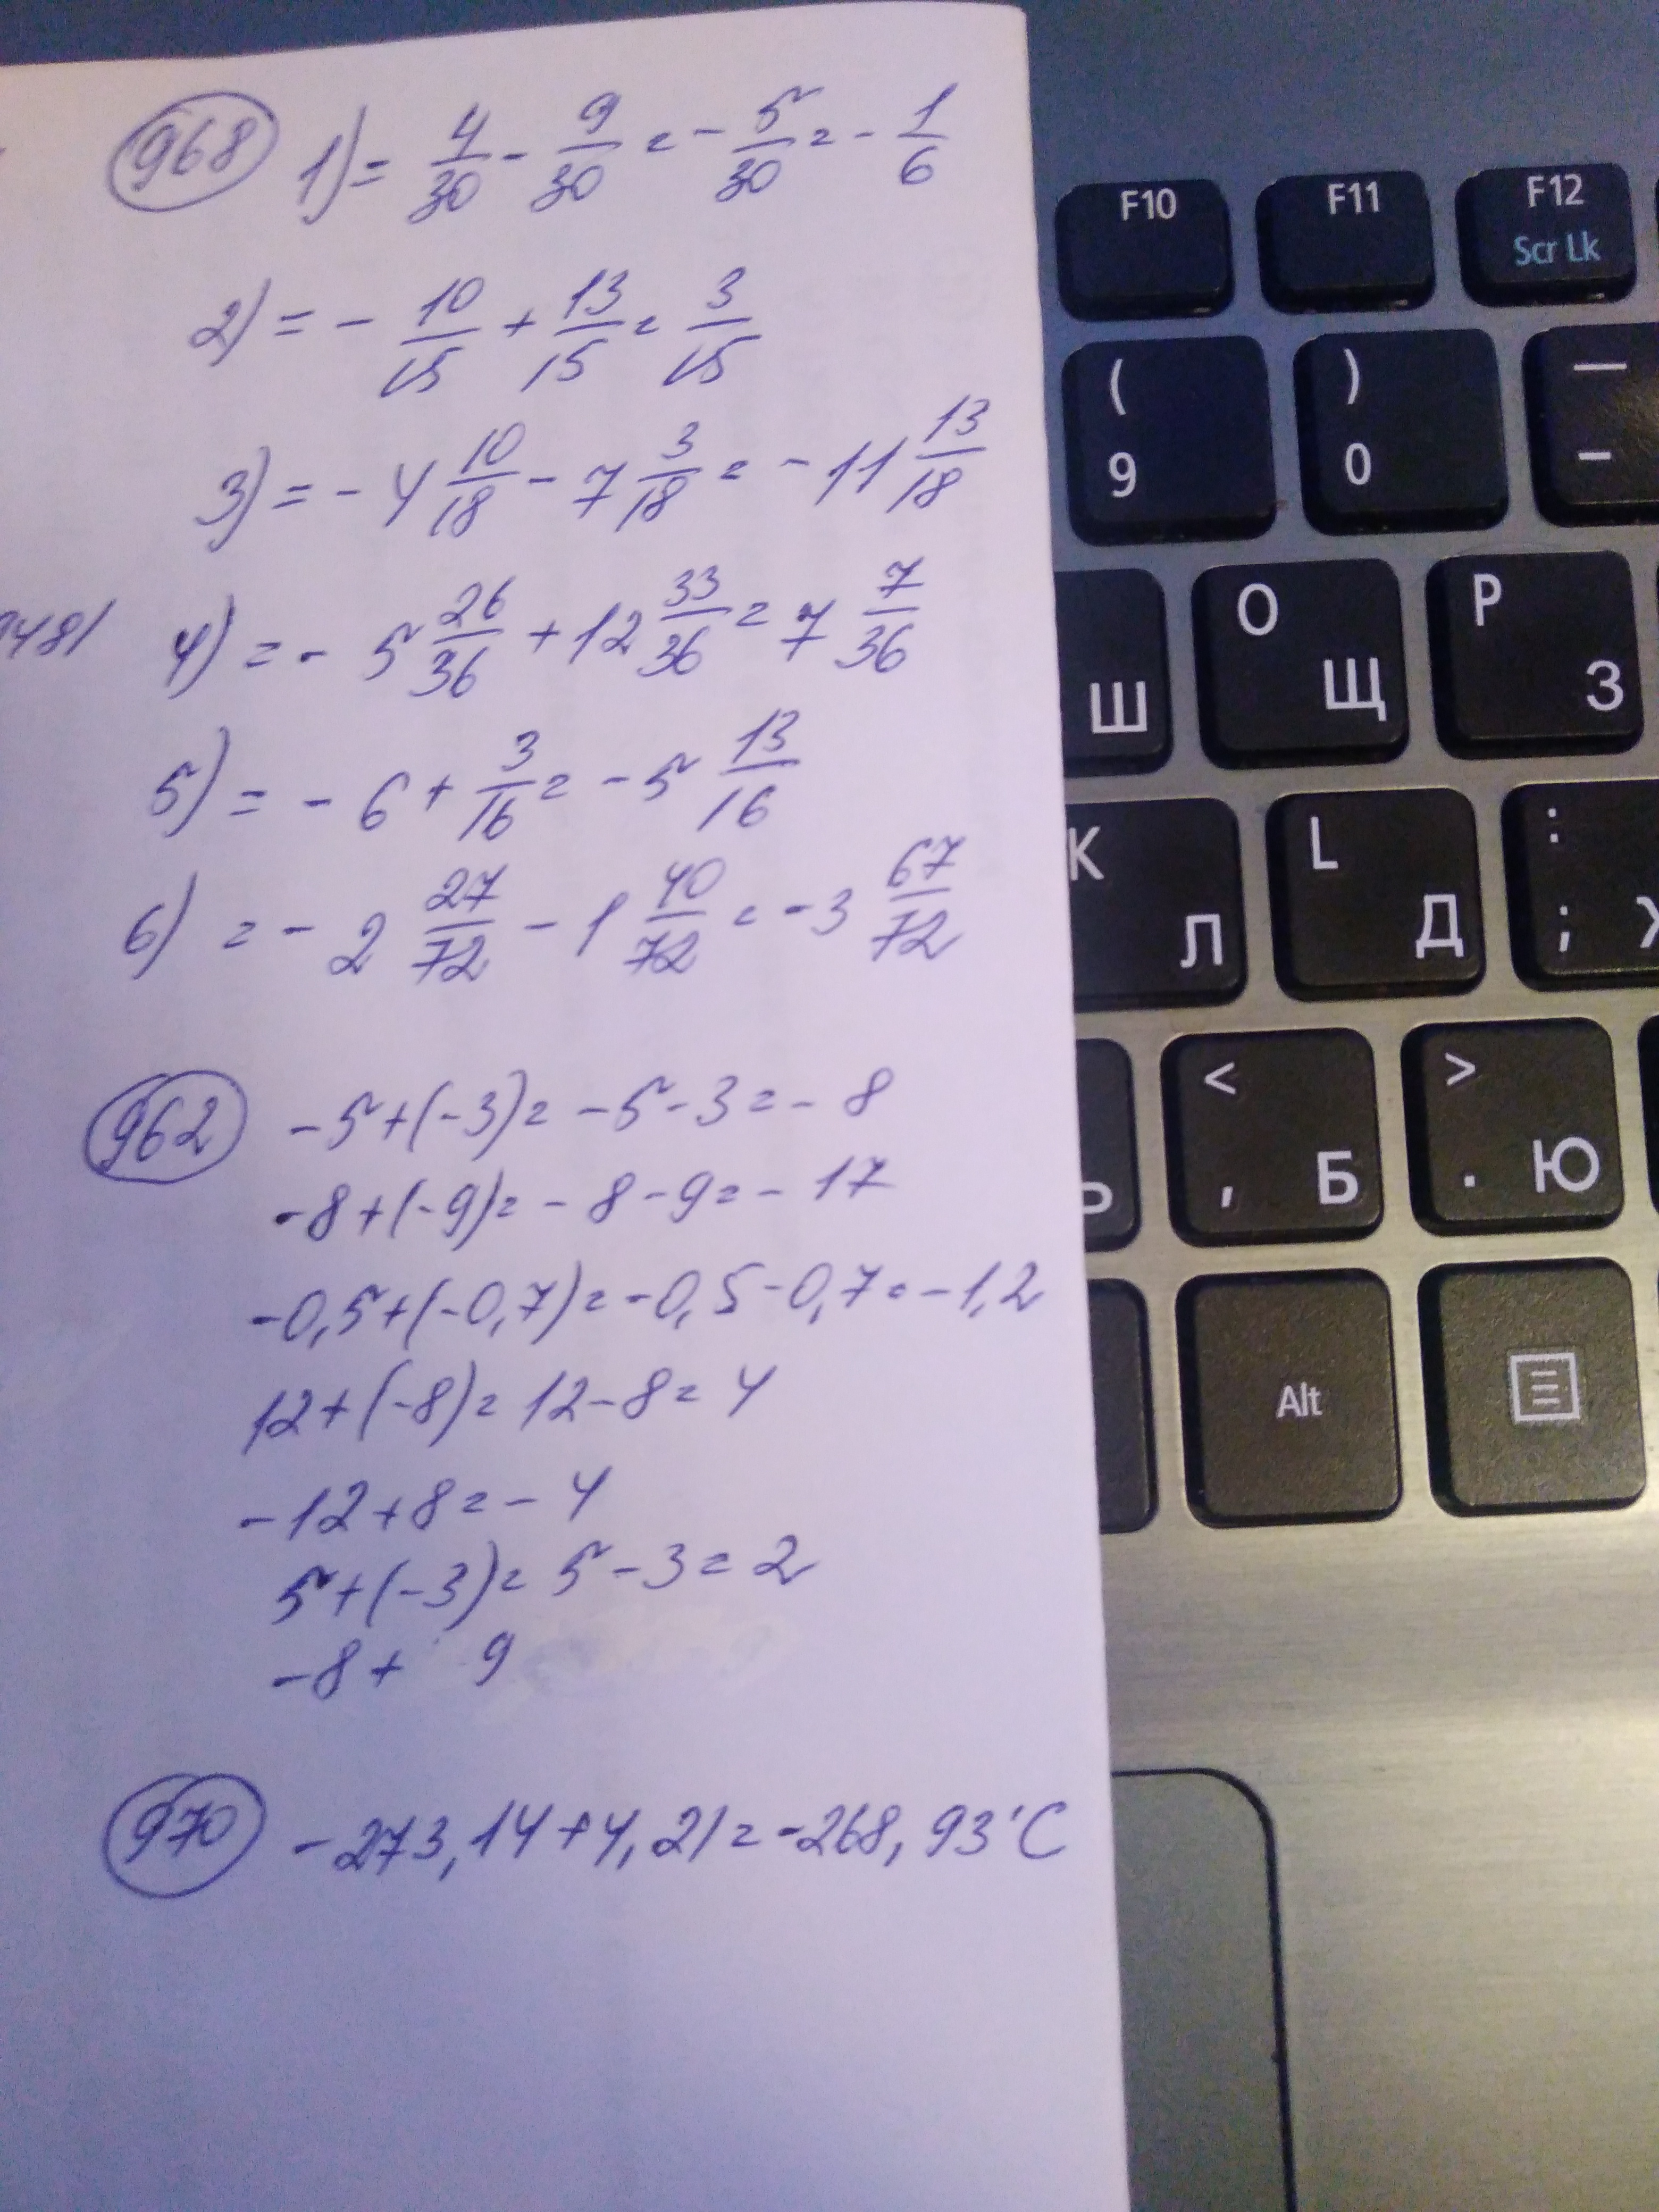 968 1) = 4/30 - 9/30 = - 5/30 = - 1/6
2) = - 10/15 + 13/15 = 3/15
3) = - 4 10/18 - 7 3/18 = - 11 13/18
4) = - 5 26/36 + 12 33/36 = 7 7/36
5) = - 6 + 3/16 = - 5 13/16
6) = - 2 27/72 - 1 40/72 = - 3 67/72
962 -5+(-3)= -5-3=-8
-8+(-9)= -8-9=-17
-0,5+(-0,7)=-0,5-0,7=-1,2
12+(-8)= 12-8= 4
-12+8=-4
5+(-3)= 5-3=2
-8+ 9
970 -273,14+4,21=-268,93°C
F10 F11 F12
Scr Lk
( ) —
9 0 -
Ш O Щ P З
K Л L Д : ;
Ь < , Б > . Ю
Alt